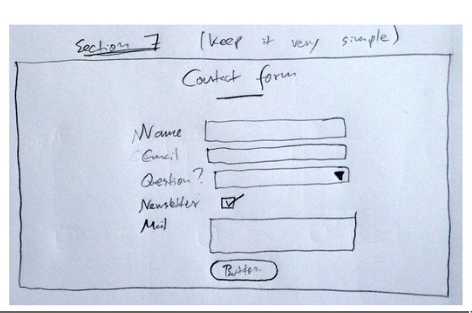 Section 7 (keep it very simple)
Contact form
Name
Email
Question?
Newsletter
Mail
Button